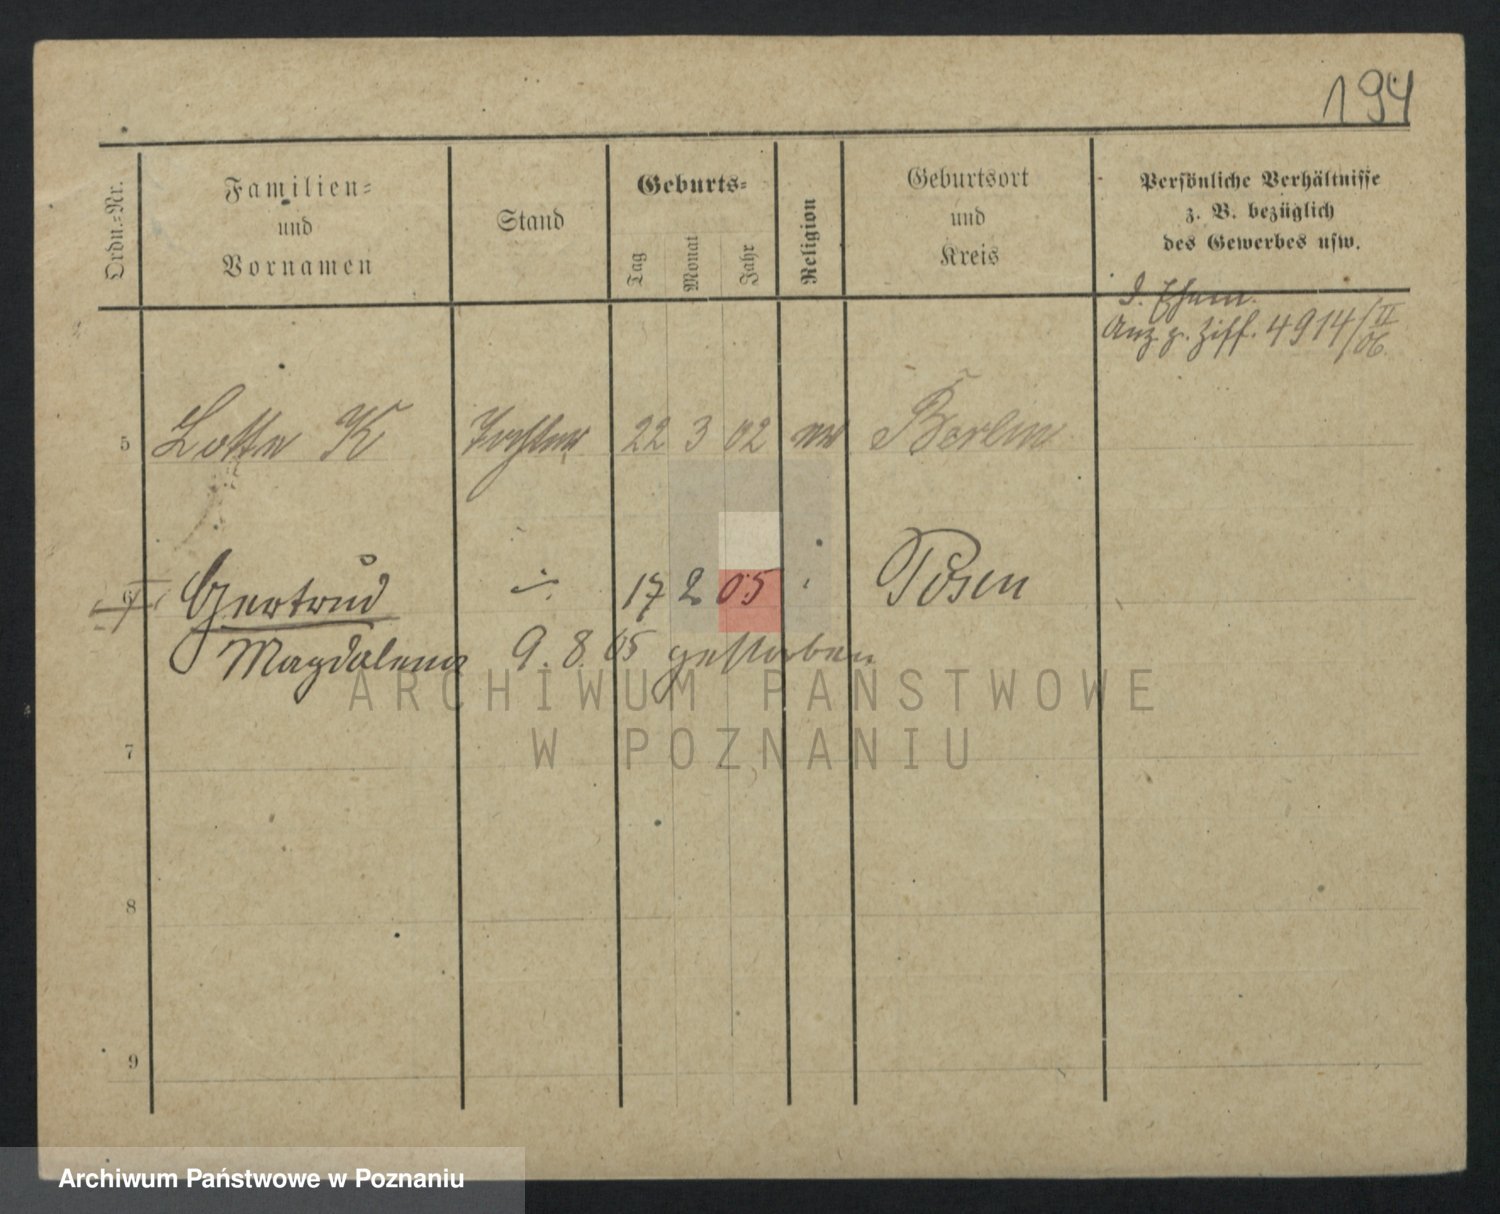 194
Ordn.-Nr.
Familien-
und
Vornamen
Stand
Geburts-
Tag
Monat
Jahr
Religion
Geburtsort
und
Kreis
Persönliche Verhältnisse
z. B. bezüglich
des Gewerbes usw.
Anz. z. Ziff. 4914/II 06.
5 Lotte K Tochter 22 3 02 ev Berlin
6 Gertrud 17 2 05 Posen
Magdalena 9. 8. 05 gestorben
ARCHIWUM PAŃSTWOWE
W POZNANIU
7
8
9
Archiwum Państwowe w Poznaniu